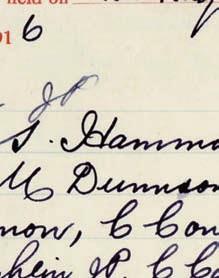 held on
916
JP
S. Hammo
Mc Dunnson
mon, C Con
hlein JP. C C